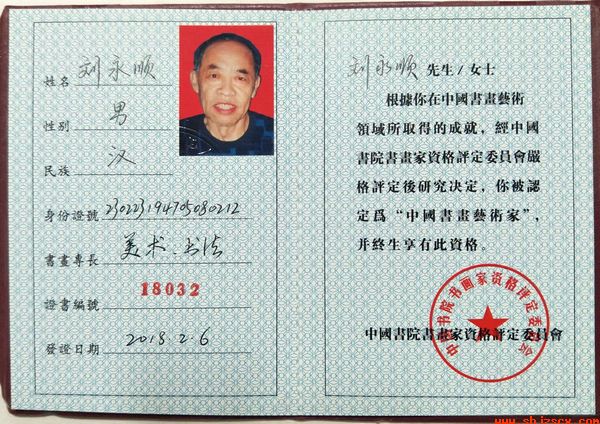 姓名 刘永顺
性别 男
民族 汉
身份證號 230223194705080212
書畫專長 美术、书法
證書編號 18032
發證日期 2018.2.6
刘永顺 先生/女士
根據你在中國書畫藝術
領域所取得的成就，經中國
書院書畫家資格評定委員會嚴
格評定後研究决定，你被認
定爲“中國書畫藝術家”，
并終生享有此資格。
中國書院書畫家資格評定委員會
中国书院书画家资格评定委员会
www.shjzscx.com